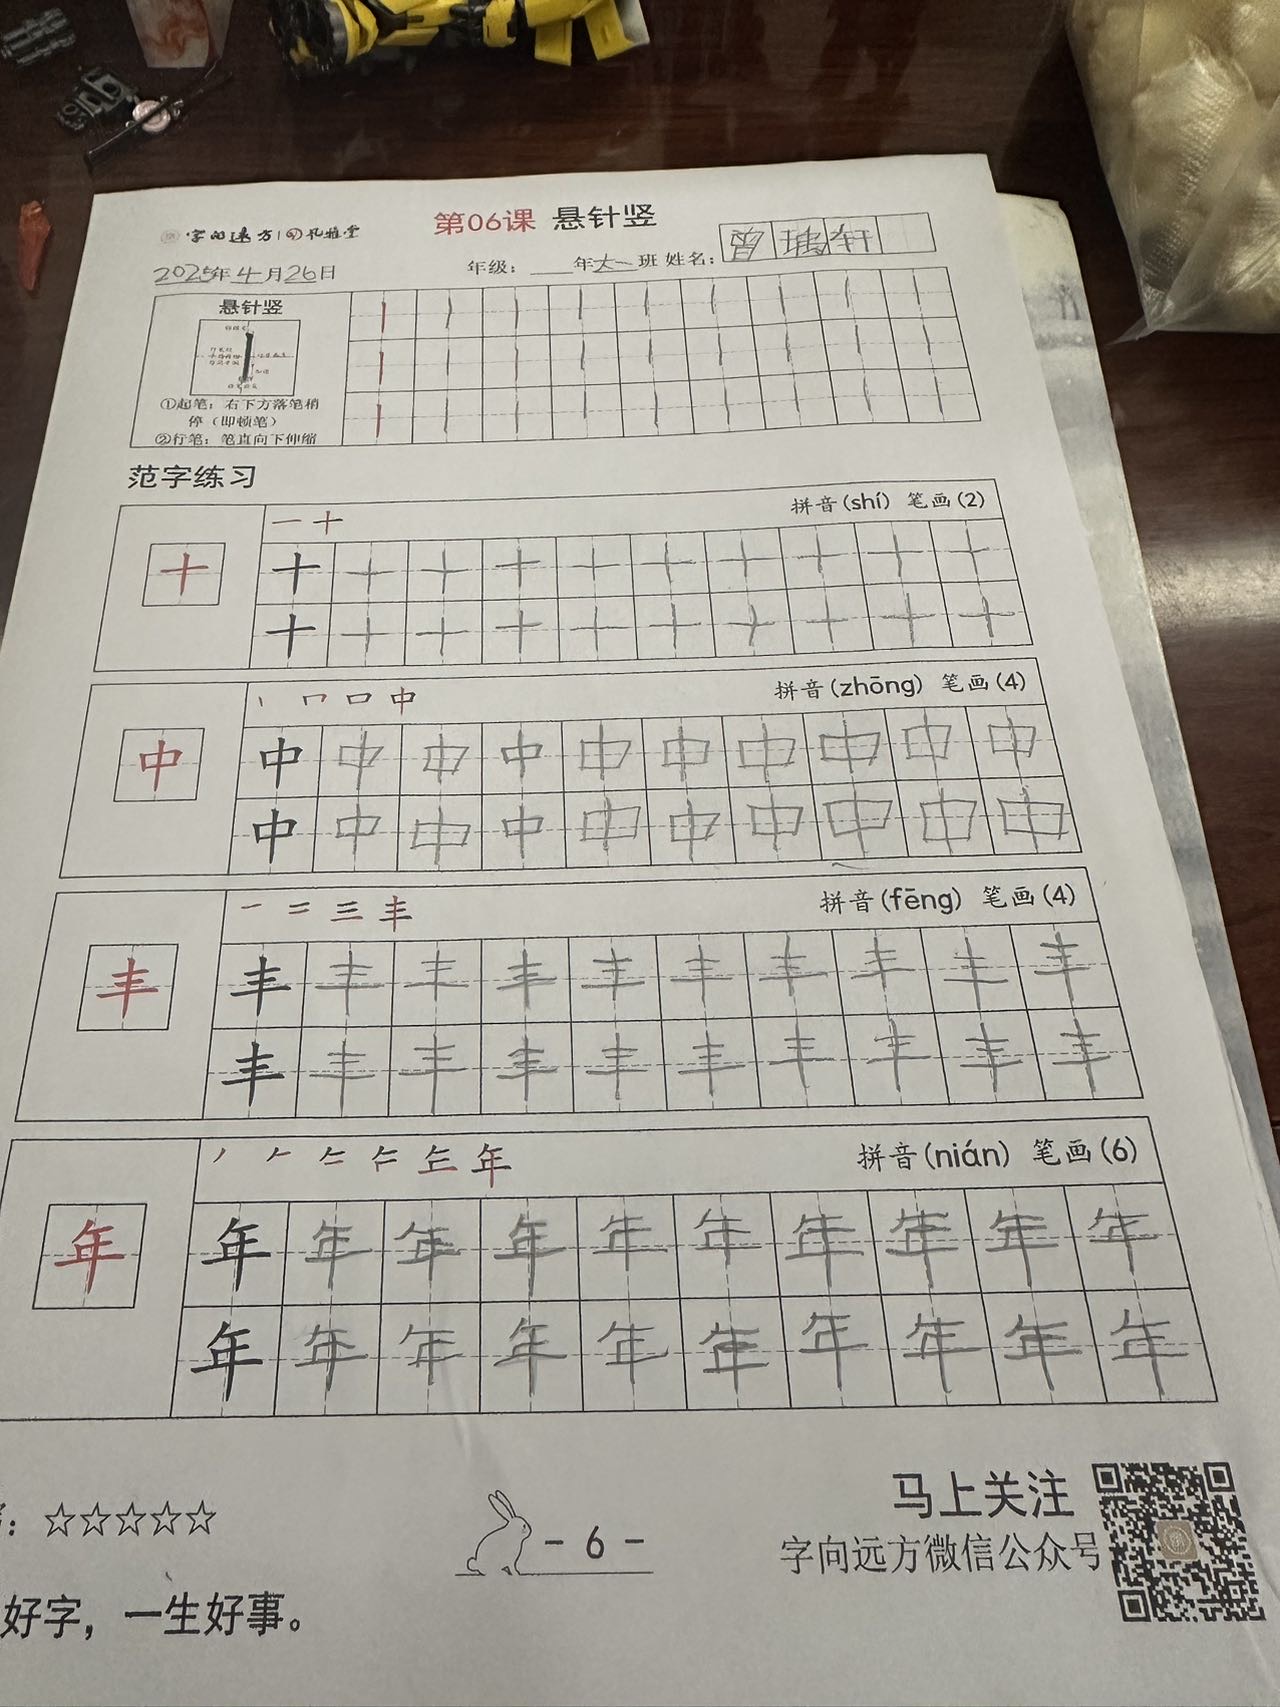 字向远方 礼雅堂
第06课 悬针竖
2025年4月26日
年级：____年大一班 姓名：曾 轩
悬针竖
①起笔：右下方落笔稍
停（即顿笔）
②行笔：笔直向下伸缩
范字练习
一 十
拼音(shí) 笔画(2)
十
十 十 十 十 十 十 十 十 十 十
十 十 十 十 十 十 十 十 十 十
中
拼音(zhōng) 笔画(4)
中
中 中 中 中 中 中 中 中 中 中
中 中 中 中 中 中 中 中 中 中
一 二 三 丰
拼音(fēng) 笔画(4)
丰
丰 丰 丰 丰 丰 丰 丰 丰 丰 丰
丰 丰 丰 丰 丰 丰 丰 丰 丰 丰
年
拼音(nián) 笔画(6)
年
年 年 年 年 年 年 年 年 年 年
年 年 年 年 年 年 年 年 年 年
：☆☆☆☆☆
- 6 -
马上关注
字向远方微信公众号
好字，一生好事。